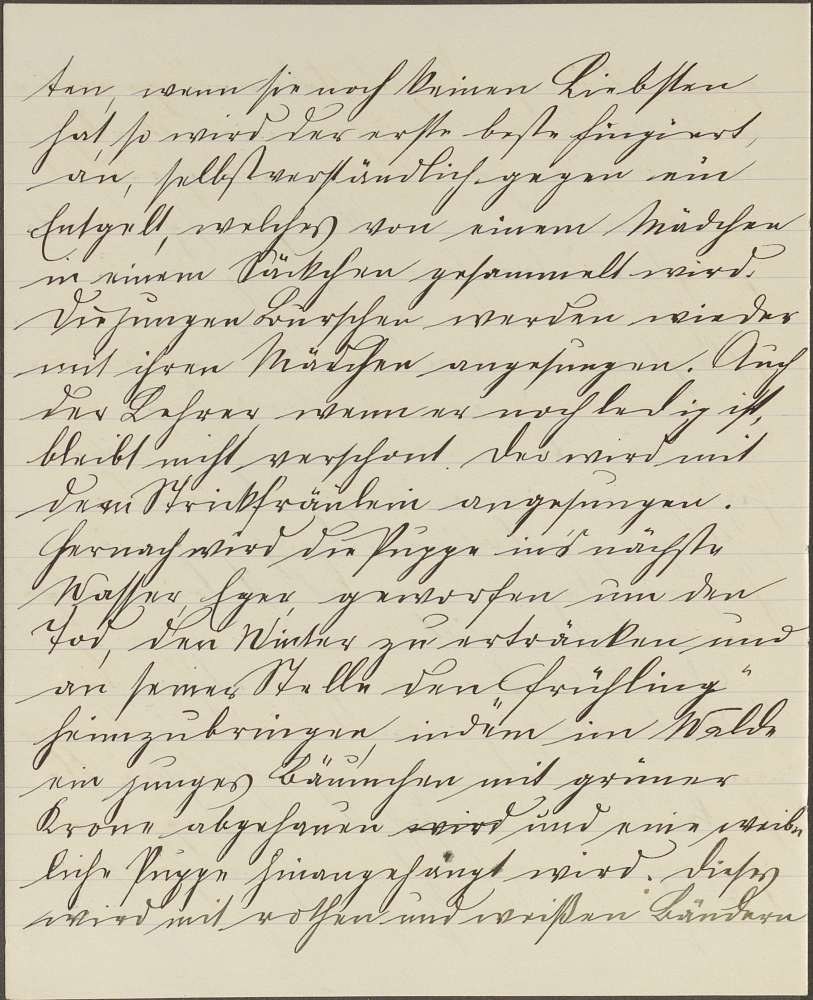 ten, wenn sie noch keinen Liebsten
hat, so wird der erste beste fingiert,
an, selbstverständlich gegen ein
Entgelt, welches von einem Mädchen
in einem Säckchen gesammelt wird.
Die jungen Burschen werden wieder
mit ihren Mädchen angesungen. Auch
der Lehrer, wenn er noch ledig ist,
bleibt nicht verschont. Der wird mit
dem Strickfräulein angesungen.
Hernach wird die Puppe in's nächste
Wasser, Eger, geworfen um den
Tod, den Winter zu ertränken und
an seiner Stelle den "Frühling"
heimzubringen, indem im Walde
ein junges Bäumchen mit grüner
Krone abgehauen wird und eine weib-
liche Puppe hinangehängt wird. Dieses
wird mit rothen und weißen Bändern